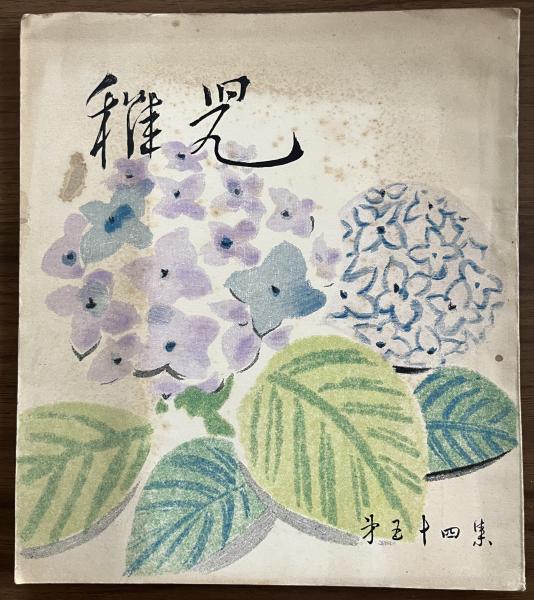 稚児
第五十四集